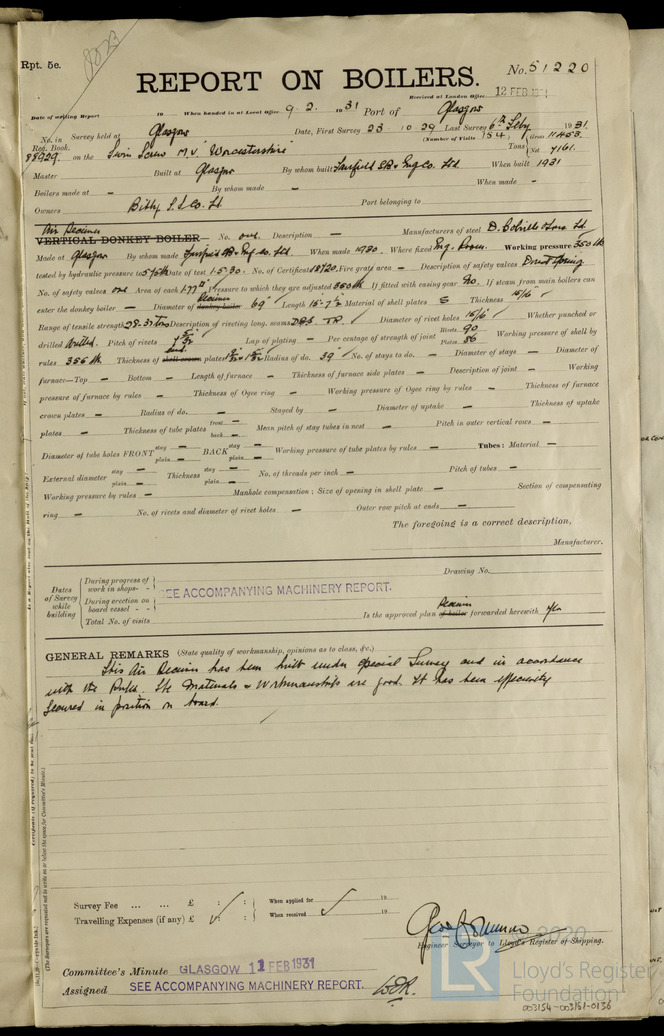 Rpt. 5e.
8023
REPORT ON BOILERS.
No. 51220
Received at London Office 12 FEB 1931
Date of writing Report 19 When handed in at Local Office 9.2.1931 Port of Glasgow
No. in Reg. Book. Survey held at Glasgow Date, First Survey 23.10.29 Last Survey 6th Feby 1931
(Number of Visits 154) Gross 11453
88929 on the Twin Screw M.V. "Worcestershire" Tons Net 7161
Master Built at Glasgow By whom built Fairfield SB & Eng Co. Ltd When built 1931
Boilers made at – By whom made – When made –
Owners Bibby S.S. Co. Ld. Port belonging to
Air Receiver
VERTICAL DONKEY BOILER No. one Description – Manufacturers of steel D. Colville & Sons Ld.
Made at Glasgow By whom made Fairfield SB & Eng Co. Ltd When made 1930 Where fixed Eng. Room. Working pressure 350 lb
tested by hydraulic pressure to 575 lb Date of test 1.5.30 No. of Certificate 18720 Fire grate area – Description of safety valves Direct Spring
No. of safety valves one Area of each 1.77" Pressure to which they are adjusted 350 lb If fitted with easing gear No. If steam from main boilers can
enter the donkey boiler – Diameter of donkey boiler Receiver 69" Length 15'-7½" Material of shell plates S Thickness 15/16"
Range of tensile strength 28-32 Tons Description of riveting long. seams DBS TR. Diameter of rivet holes 15/16" Whether punched or
drilled drilled. Pitch of rivets Lap of plating – Per centage of strength of joint Rivets 90 Plates 86 Working pressure of shell by
rules 356 lb. Thickness of shell crown end plates Radius of do. 39" No. of stays to do. – Diameter of stays – Diameter of
furnace—Top – Bottom – Length of furnace – Thickness of furnace side plates – Description of joint – Working
pressure of furnace by rules – Thickness of Ogee ring – Working pressure of Ogee ring by rules – Thickness of furnace
crown plates – Radius of do. – Stayed by – Diameter of uptake – Thickness of uptake
plates – Thickness of tube plates front – back – Mean pitch of stay tubes in nest – Pitch in outer vertical rows –
Diameter of tube holes FRONT stay – plain – BACK stay – plain – Working pressure of tube plates by rules – Tubes: Material –
External diameter stay – plain – Thickness stay – plain – No. of threads per inch – Pitch of tubes –
Working pressure by rules – Manhole compensation: Size of opening in shell plate – Section of compensating
ring – No. of rivets and diameter of rivet holes – Outer row pitch at ends –
The foregoing is a correct description,
Manufacturer.
Dates of Survey while building
During progress of work in shops - -
During erection on board vessel - -
Total No. of visits
SEE ACCOMPANYING MACHINERY REPORT.
Drawing No.
Is the approved plan of boiler Receiver forwarded herewith yes
GENERAL REMARKS (State quality of workmanship, opinions as to class, &c.)
This Air Receiver has been built under Special Survey and in accordance
with the Rules. The Materials & Workmanship are good. It has been efficiently
secured in position on board.
Survey Fee ... ... £ : : When applied for 19
Travelling Expenses (if any) £ : : When received 19
Engineer Surveyor to Lloyd's Register of Shipping.
Committee's Minute GLASGOW 11 FEB 1931
Assigned SEE ACCOMPANYING MACHINERY REPORT.
© 2020
LR
Lloyd's Register
Foundation
003154-003161-0136